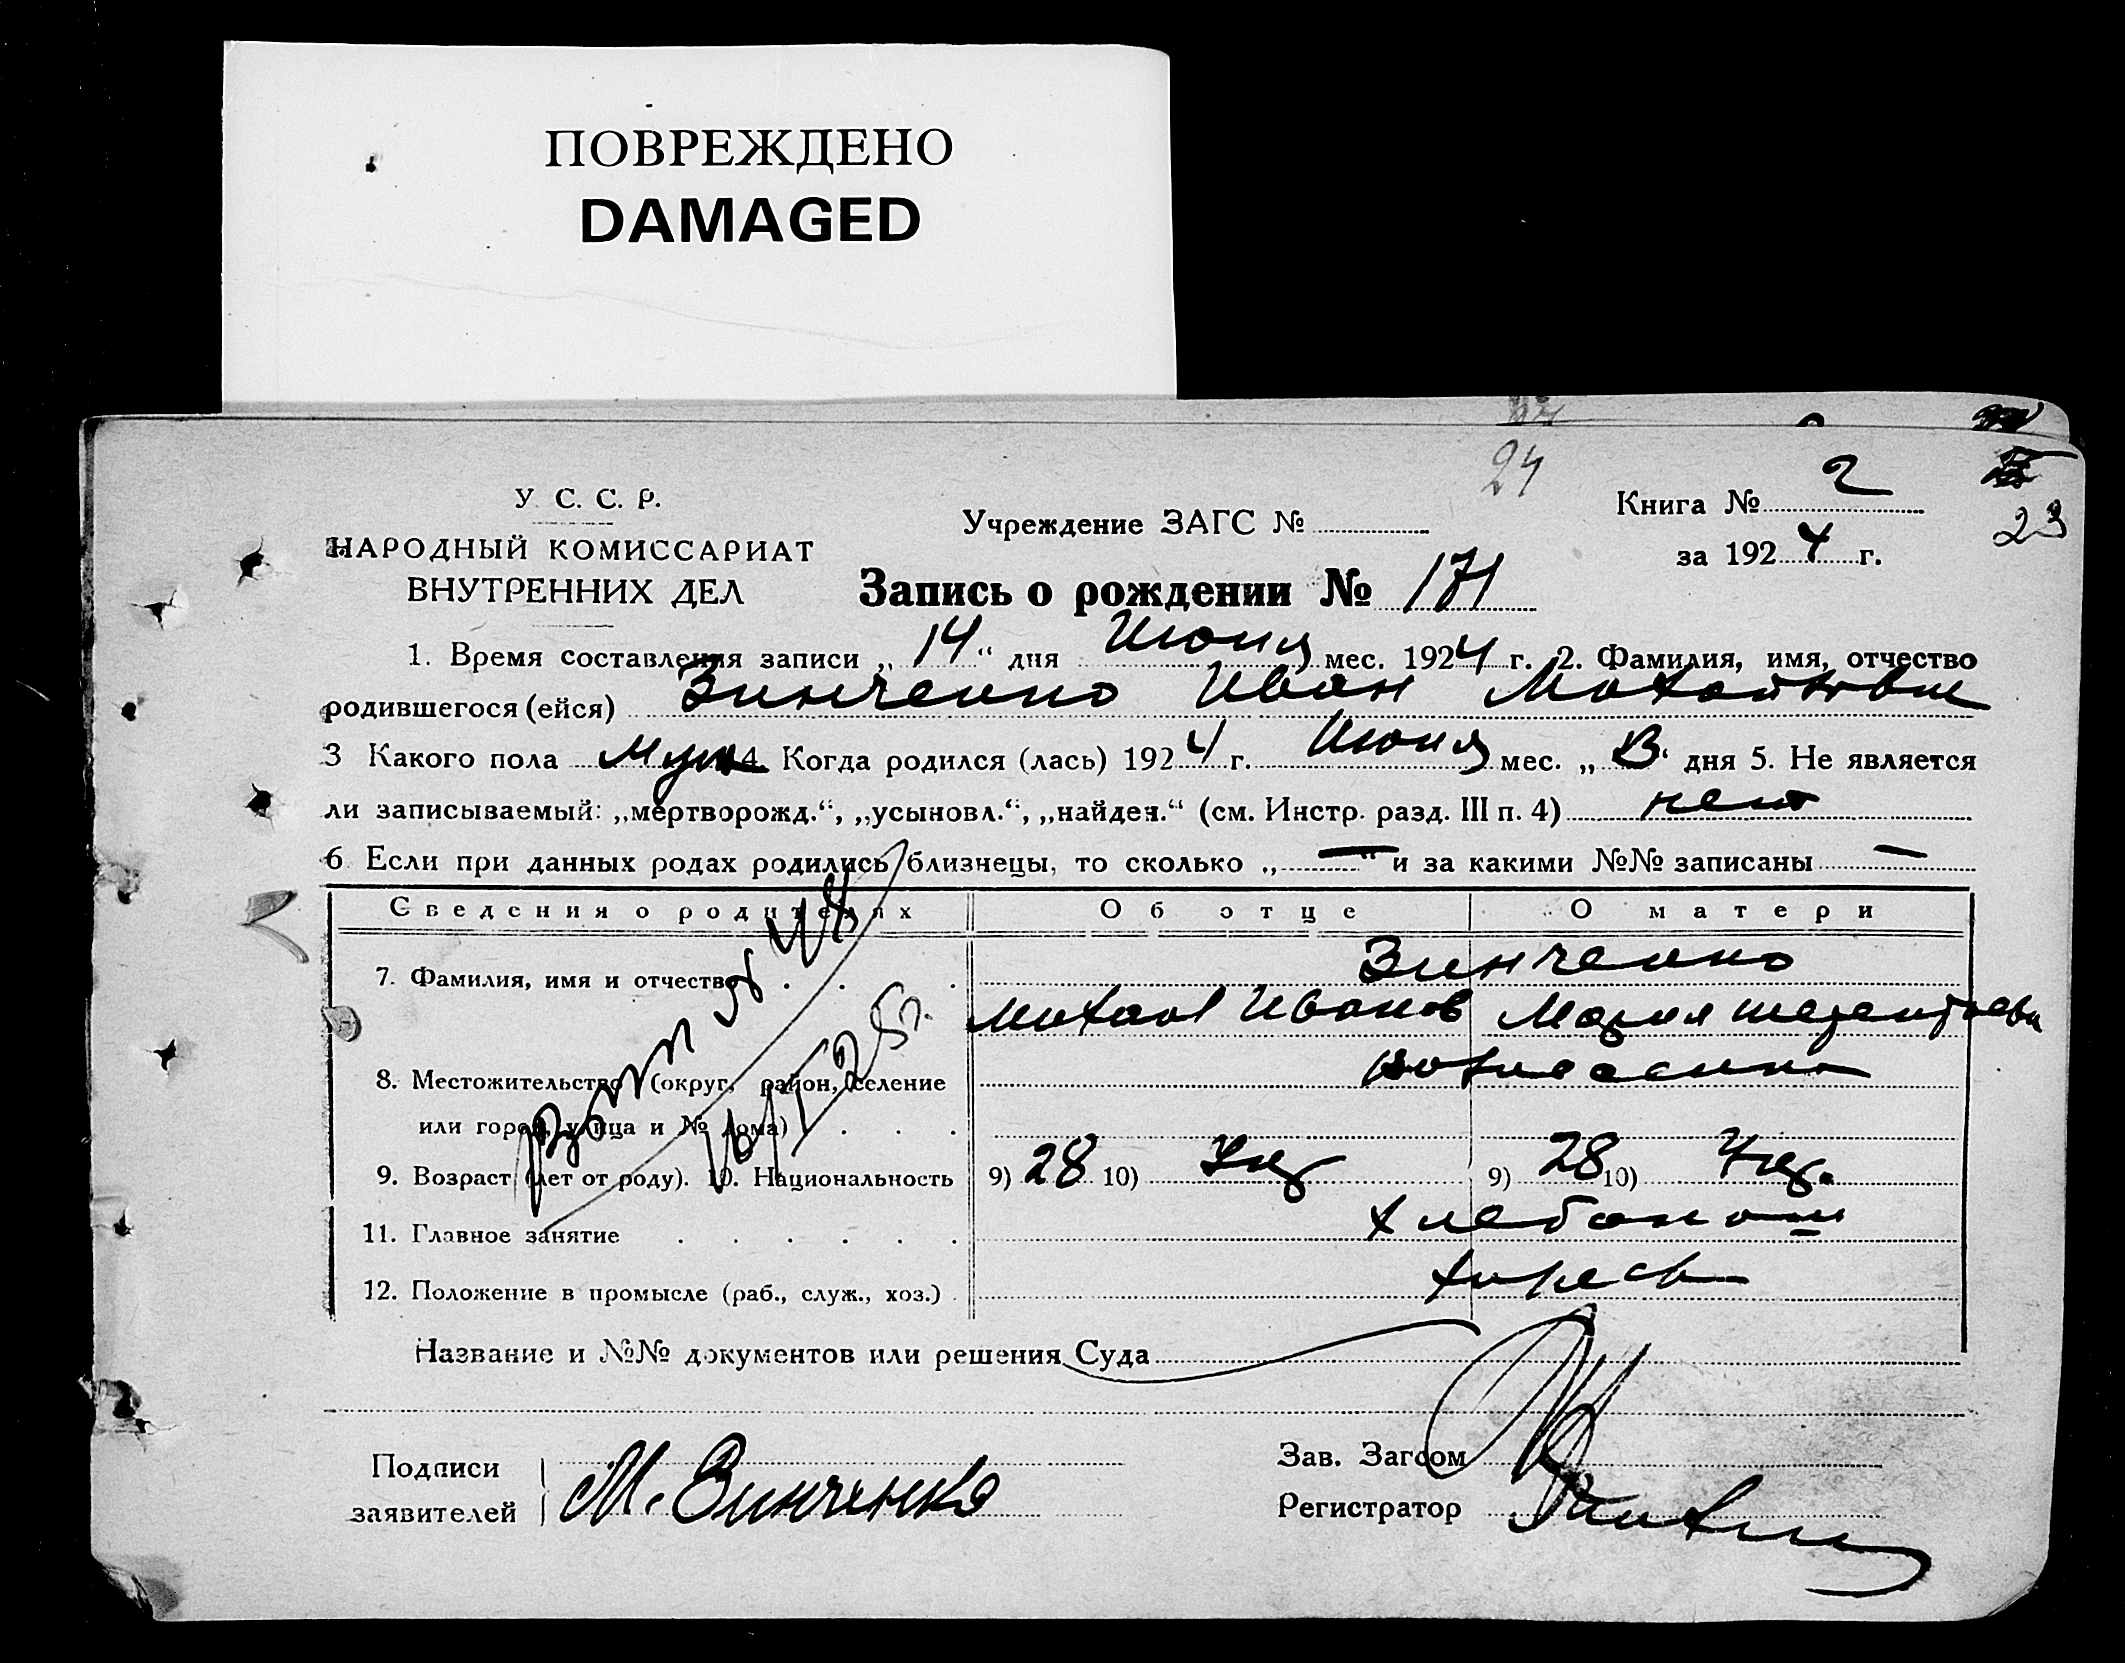 ПОВРЕЖДЕНО
DAMAGED
24
У. С. С. Р.
НАРОДНЫЙ КОМИССАРИАТ
ВНУТРЕННИХ ДЕЛ
Учреждение ЗАГС №
Книга № 2
23
за 1924 г.
Запись о рождении № 171
1. Время составления записи „14“ дня Июня мес. 1924 г. 2. Фамилия, имя, отчество
родившегося (ейся) Зинченко Иван Михайлович
3 Какого пола муж 4. Когда родился (лась) 1924 г. Июня мес. „ “ дня 5. Не является
ли записываемый: „мертворожд.“, „усыновл.“, „найден.“ (см. Инстр. разд. III п. 4) нет
6. Если при данных родах родились близнецы, то сколько „—“ и за какими №№ записаны —
Сведения о родителях Об отце О матери
7. Фамилия, имя и отчество Зинченко
Михаил Иванов Мария
8. Местожительство (округ, район, селение
или город, улица и № дома)
9. Возраст (лет от роду). 10. Национальность 9) 28 10) Укр 9) 28 10) Укр.
11. Главное занятие
12. Положение в промысле (раб., служ., хоз.)
Название и №№ документов или решения Суда
Подписи
заявителей М. Зинченко
Зав. Загсом
Регистратор